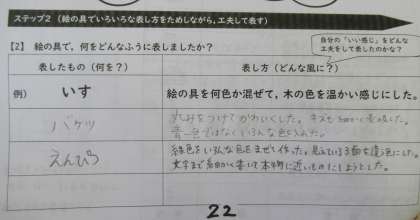 ステップ2 (絵の具でいろいろな表し方をためしながら,工夫して表す)
自分の「いい感じ」をどんな
工夫をして表したのかな?
【2】 絵の具で,何をどんなふうに表しましたか?
表したもの(何を?) 表し方(どんな風に?)
例) いす 絵の具を何色か混ぜて,木の色を温かい感じにした。
バケツ 丸みをつけてかわいくした。キズも細かく表現した。
青一色ではなくいろんな色を入れた。
えんぴつ 緑色をいろんな色をまぜて作った。見えている3面を違う色にした。
文字まで細かく書いて本物に近いものにしようとした。
22